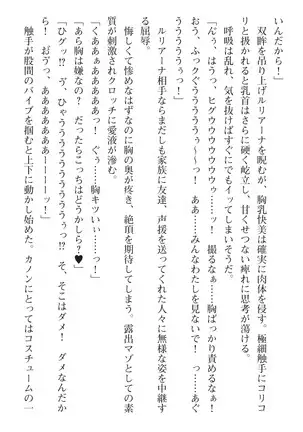 いんだから！」
　双眸を吊り上げルリアーナを睨むが、胸乳快美は確実に肉体を侵す。極細触手にコリコ
リと扱かれると乳首はますます硬く屹立し、甘くせつない痺れに思考が蕩ける。
　呼吸は乱れ、気を抜けばすぐにでもイッてしまいそうだ。
「んぅ、はうっ、ヒグウウウウウゥ…ッ！　な……胸ばっかり責めるなぁ！
ぅあぁ、ふっクぅうううううぅぅ～～っ！　あ……あぁ……みんなわたしを見ないで！　くぅ……あぐ
うううううぅぅっ！」
　ルリアーナ相手ならまだしも家族に友達、声援を送ってくれた人々に無様な姿を中継す
る屈辱。
　悔しくて惨めなはずなのに胸の奥が疼き、絶頂を期待してしまう。露出マゾとしての素
質が刺激されクロッチに愛液が滲む。
「くあぁぁああああっ！　ぐぅ……胸キツい……っ！」
「あら胸は嫌なの？　だったらこっちはどうかしら？♥」
「ひグッ!?　う、ひゃうううううううぅっ!?　そ、そこはダメ！　ダメなんだか
ら！　おうっ、あああああぁーーーーッ！」
　触手が股間のバイブを掴むと上下に動かし始めた。カノンにとってはコスチュームの一